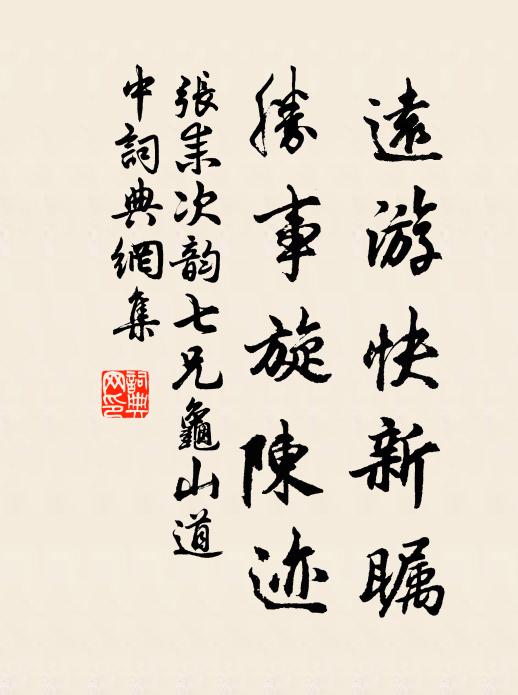 遠游快新瞩
勝事旋陳迹
張耒次韵七兄龜山道
中詞典網集
詞典网印